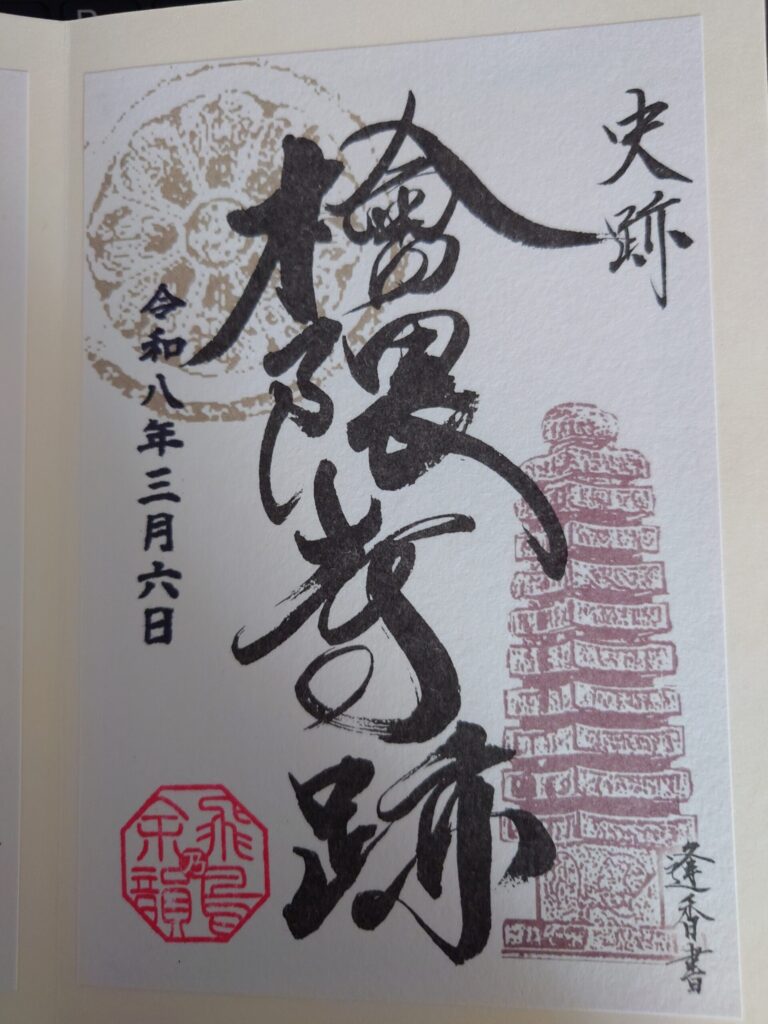 史跡
檜隈寺跡
令和八年三月六日
飛鳥乃余韻
逢香書